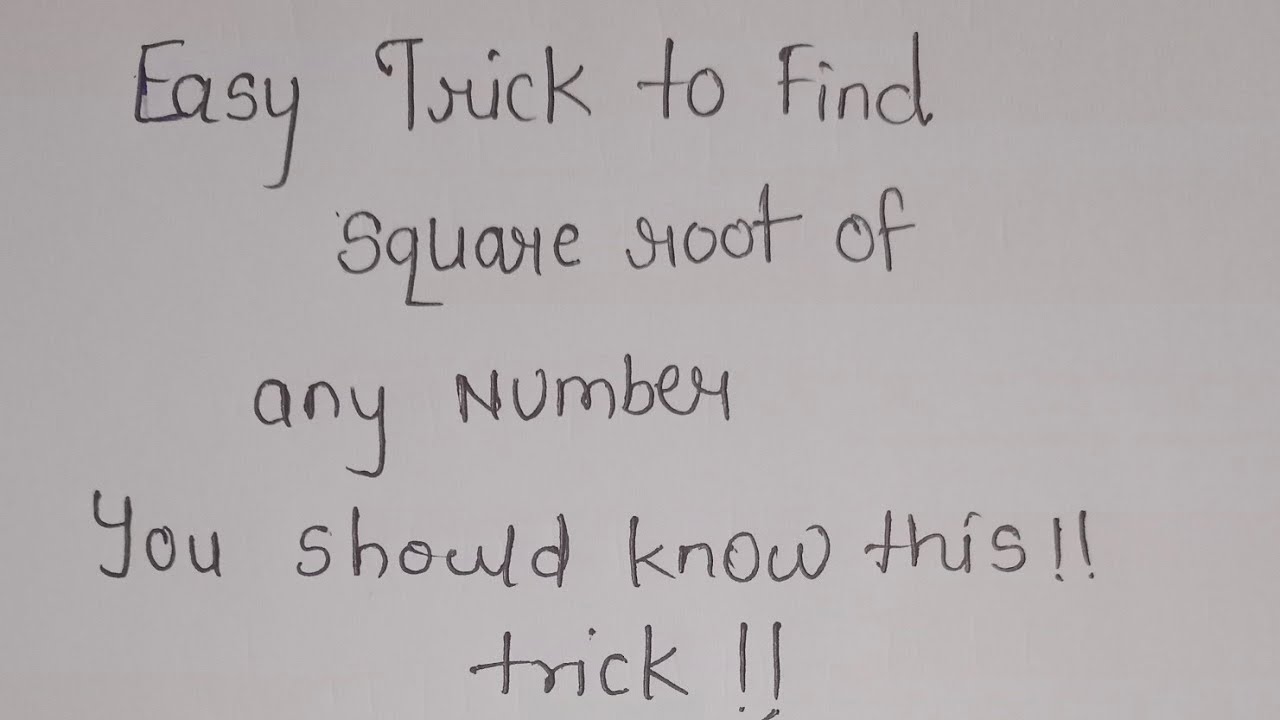 Easy Trick to Find
Square root of
any Number
You should know this!!
trick!!